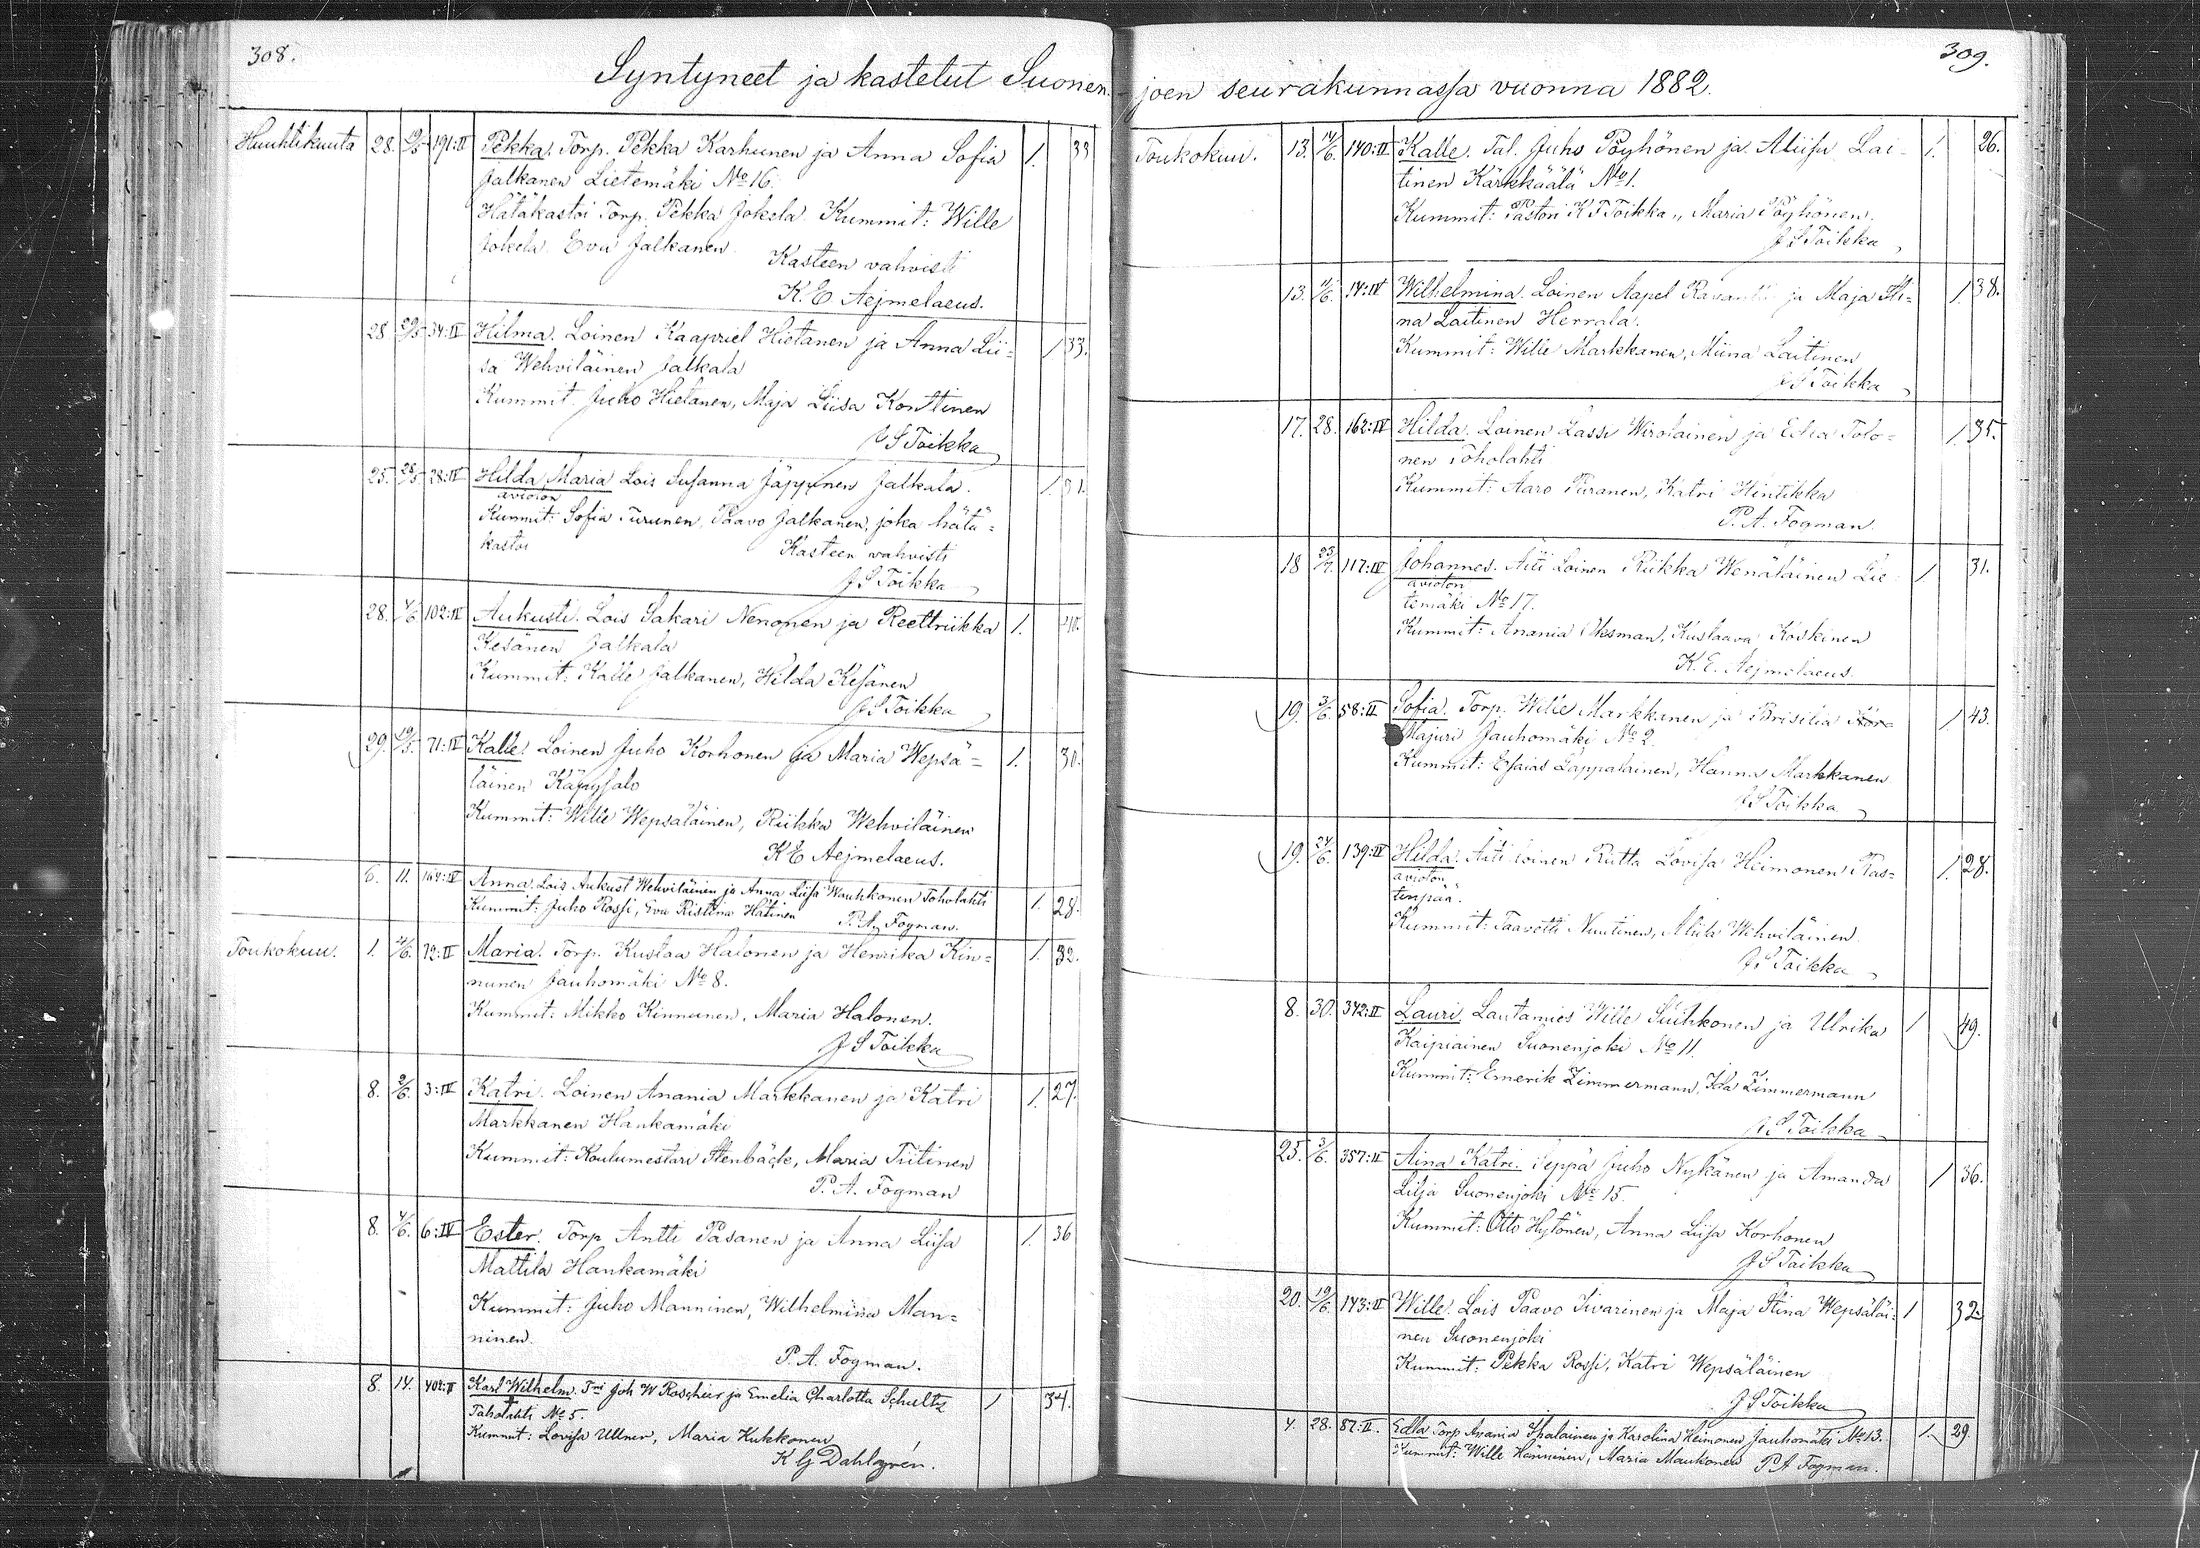 308.
Syntyneet ja kastetut Suonen-
Huuhtikuuta 28. 19/5 191:II Pekka. Torp. Pekka Karhunen ja Anna Sofia 1. 33
Jalkanen Lietemäki No 16.
Hätäkastoi Torp. Pekka Jokela. Kummit: Wille
Jokela. Eva Jalkanen.
Kasteen vahvisti
K. E Aejmelaeus.
28 29/5 34:IV Hilma. Loinen Kaapriel Hietanen ja Anna Lii= 1 33.
sa Wehviläinen Jalkala
Kummit. Juho Hietanen, Maja Liisa Konttinen
J S Toikka
25. 28/5 28:IV Hilda Maria Lois Susanna Jäppinen Jalkala. 1. 31.
avioton
Kummit: Sofia Turunen, Paavo Jalkanen, joka hätä=
kastoi Kasteen vahvisti
J S Toikka
28. 4/6 102:IV Aukusti. Lois Sakari Nenonen ja Reettriikka 1. 40.
Kesänen Jalkala
Kummit: Kalle Jalkanen, Hilda Kesänen
J S Toikka
29. 19/5. 71:IV Kalle. Loinen Juho Korhonen ja Maria Wepsä= 1. 30.
läinen Käpysalo
Kummit: Wille Wepsäläinen, Riikka Wehviläinen
K E Aejmelaeus.
6. 11. 164:IV Anna. Lois Aukust Wehviläinen ja Anna Liisa Wauhkonen Toholahti 1. 28.
Kummit: Juho Rossi, Eva Ristina Hätinen P. A. Fogman.
Toukokuu. 1. 4/6. 72:II Maria. Torp. Kustaa Halonen ja Henrika Kin= 1. 32.
nunen Jauhomäki No 8.
Kummit: Mikko Kinnunen, Maria Halonen.
J S Toikka
8. 2/6. 3:IV Katri. Loinen Anania Markkanen ja Katri 1. 27.
Markkanen Hankamäki
Kummit: Koulumestari Stenbäck, Maria Tiitinen
P. A. Fogman
8. 4/6. 6:IV Ester. Torp Antti Pasanen ja Anna Liisa 1. 36
Mattila Hankamäki
Kummit: Juho Manninen, Wilhelmina Man=
ninen.
P. A. Fogman.
8. 14. 402:II Karl Wilhelm. Joh W Roschier ja Emelia Charlotta Schultz 1 34.
Toholahti No 5.
Kummit: Lovisa Ullner, Maria Kukkonen
K G Dahlgrén.
309.
joen seurakunnassa vuonna 1882.
Toukokuu. 13. 14/6. 140:II Kalle. Tal. Juho Pöyhönen ja Aliisa Lai- 1. 26.
tinen Kärkkäälä No 1.
Kummit: Pastori K F Toikka, Maria Pöyhönen.
J S Toikka
13. 4/6. 14:IV Wilhelmina. Loinen Aapel ja Maja Sti= 1. 38.
na Laitinen Herrala.
Kummit: Wille Markkanen, Miina Laitinen
J S Toikka
17. 28. 162:IV Hilda. Loinen Lassi Wirolainen ja Eeva Tolo= 1. 35.
nen Toholahti
Kummit: Aaro Puranen, Katri Hintikka
P. A. Fogman.
18 23/7. 117:IV Johannes. Äiti Loinen Riikka Wenäläinen Lie= 1 31.
avioton
temäki No 17.
Kummit: Anania Oksman, Kustaava Koskinen
K. E. Aejmelaeus.
19. 3/6. 58:II Sofia. Torp. Wille Markkanen ja Brisilia Kor- 1. 43.
Majuri Jauhomäki No 2.
Kummit: Esaias Lappalainen, Hanna Markkanen
J S Toikka
19. 24/6. 139:IV Hilda. Äiti loinen Riitta Lovisa Heimonen Ras= 1. 28.
avioton
tinpää.
Kummit: Taavetti Nuutinen, Aliisa Wehviläinen
J S Toikka
8. 30. 342:II Lauri. Lautamies Wille Suihkonen ja Ulrika 1 49.
Kaipiainen Suonenjoki No 11.
Kummit: Emerik Zimmermann, Ida Zimmermann
J S Toikka
25. 3/6. 357:II Aina Katri. Seppä Juho Nykänen ja Amanda 1 36.
Lilja Suonenjoki No 15.
Kummit: Otto Hytönen, Anna Liisa Korhonen
J S Toikka
20. 19/6. 143:II Wille. Lois Paavo Iivarinen ja Maja Stina Wepsäläi= 1 32.
nen Suonenjoki
Kummit: Pekka Rossi, Katri Wepsäläinen
J S Toikka
4. 28. 87:II. Edla Torp Anania Ihalainen ja Karolina Heimonen Jauhomäki No 13. 1. 29
Kummit: Wille Hänninen, Maria Maukonen P A Fogman.